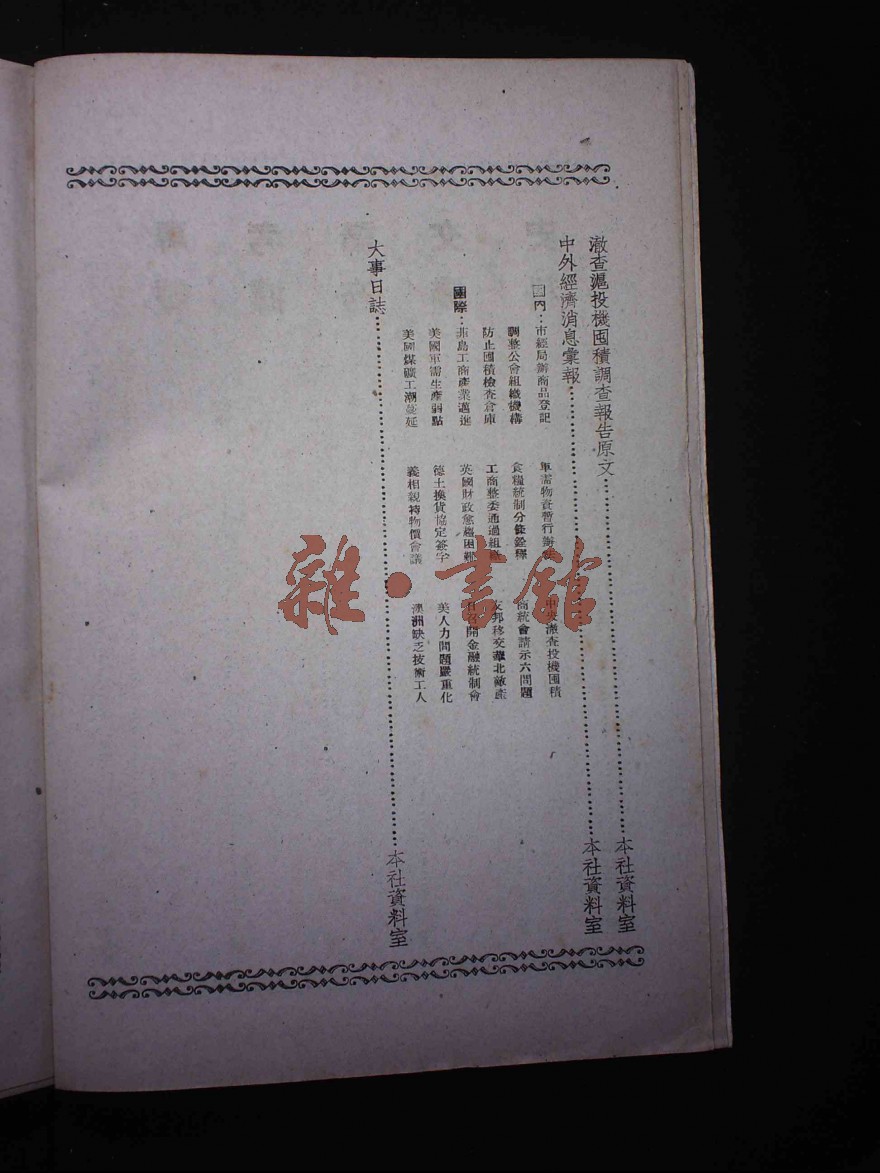 澈查滬投機囤積調查報告原文 本社資料室
中外經濟消息彙報 本社資料室
國內：市經局辦商品登記 軍需物資暫行辦法 中央澈查投機囤積
調整公會組織機構 食糧統制分條詮釋 商統會請示六問題
防止囤積檢查倉庫 工商整委通過組 友邦移交華北敵產
國際：菲島工商產業邁進 英國財政愈趨困難 日召開金融統制會
美國軍需生產弱點 德土換貨協定簽字 美人力問題嚴重化
美國煤礦工潮蔓延 義相親待物價會議 澳洲缺乏技術工人
大事日誌 本社資料室
雜·書館